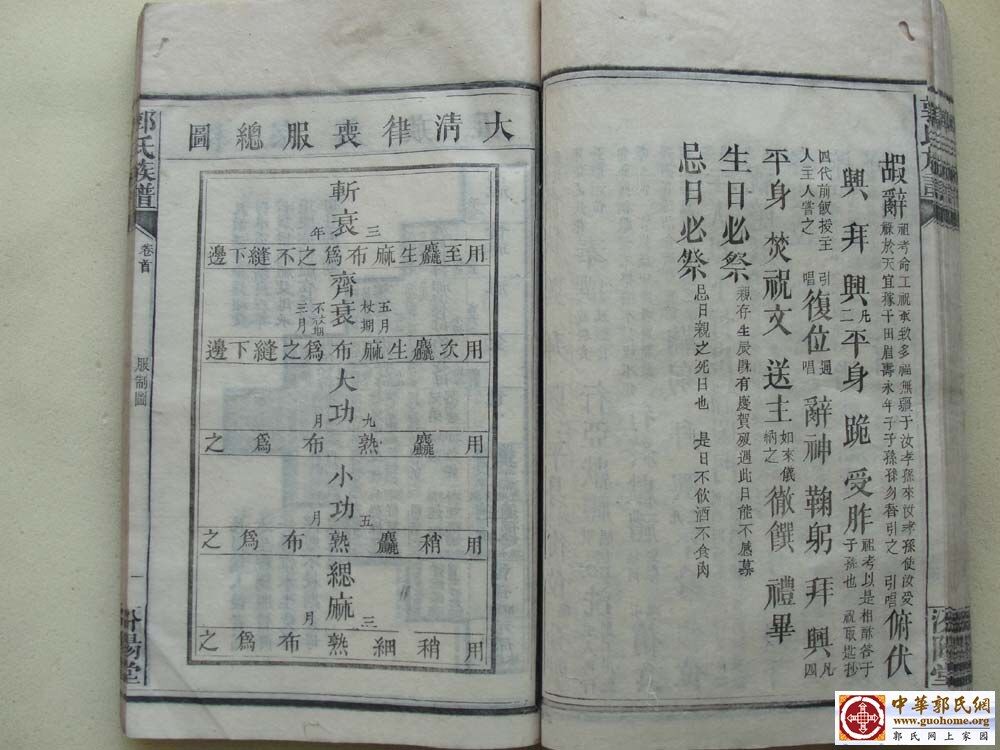 嘏辭 祖考命工祝承致多福無疆于汝孝孫來汝孝孫使汝受祿於天宜稼于田眉壽永年子子孫孫勿替引之 引唱 俯伏
興 拜 興 凡二 平身 跪 受胙 祖考以是相酬答于子孫也 祝取匙抄
四代前飯授主人主人嘗之 引唱 復位 通唱 辭神 鞠躬 拜 興 凡四
平身 焚祝文 送主 如來儀納之 徹饌 禮畢
生日必祭 親存生辰既有慶賀歿遇此日能不感慕
忌日必祭 忌日親之死日也 是日不飲酒不食肉
郭氏族譜
汾陽堂
大清律喪服總圖
斬衰 三年
用至麤生麻布為之不縫下邊
齊衰 五月 杖期 不杖期 三月
用次麤生麻布為之縫下邊
大功 九月
用麤熟布為之
小功 五月
用稍麤熟布為之
緦麻 三月
用稍細熟布為之
郭氏族譜
卷首
服制圖
一
汾陽堂
中華郭氏網
www.guohome.org
郭氏网上家园